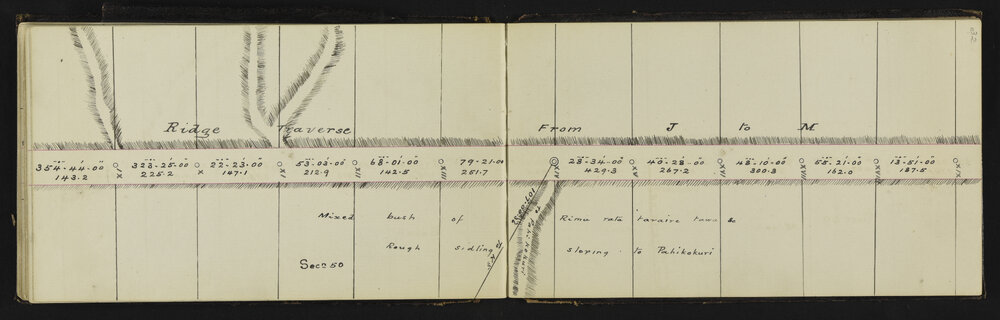 Ridge Traverse From J to M
354-44-00 328-25-00 22-23-00 53-03-00 68-01-00 79-21-00 28-34-00 40-28-00 48-10-00 55-21-00 13-51-00
143.2 225.2 147.1 212.9 142.5 251.7 429.3 267.2 300.3 162.0 187.5
Mixed bush of Rimu rata taraire tawa &c
Rough sidling sloping to Pahikokuri
Secn 50